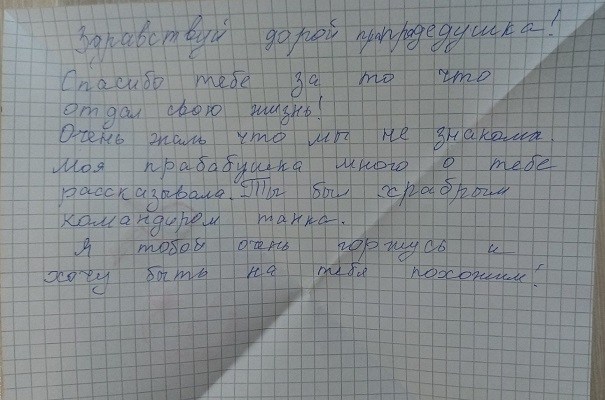 Здравствуй дорой прапрадедушка!
Спасибо тебе за то что
отдал свою жизнь!
Очень жаль что мы не знакома.
Моя прабабушка много о тебе
рассказывала. Ты был храбрым
командиром танка.
Я тобой очень горжусь и
хочу быть на тебя похожим!